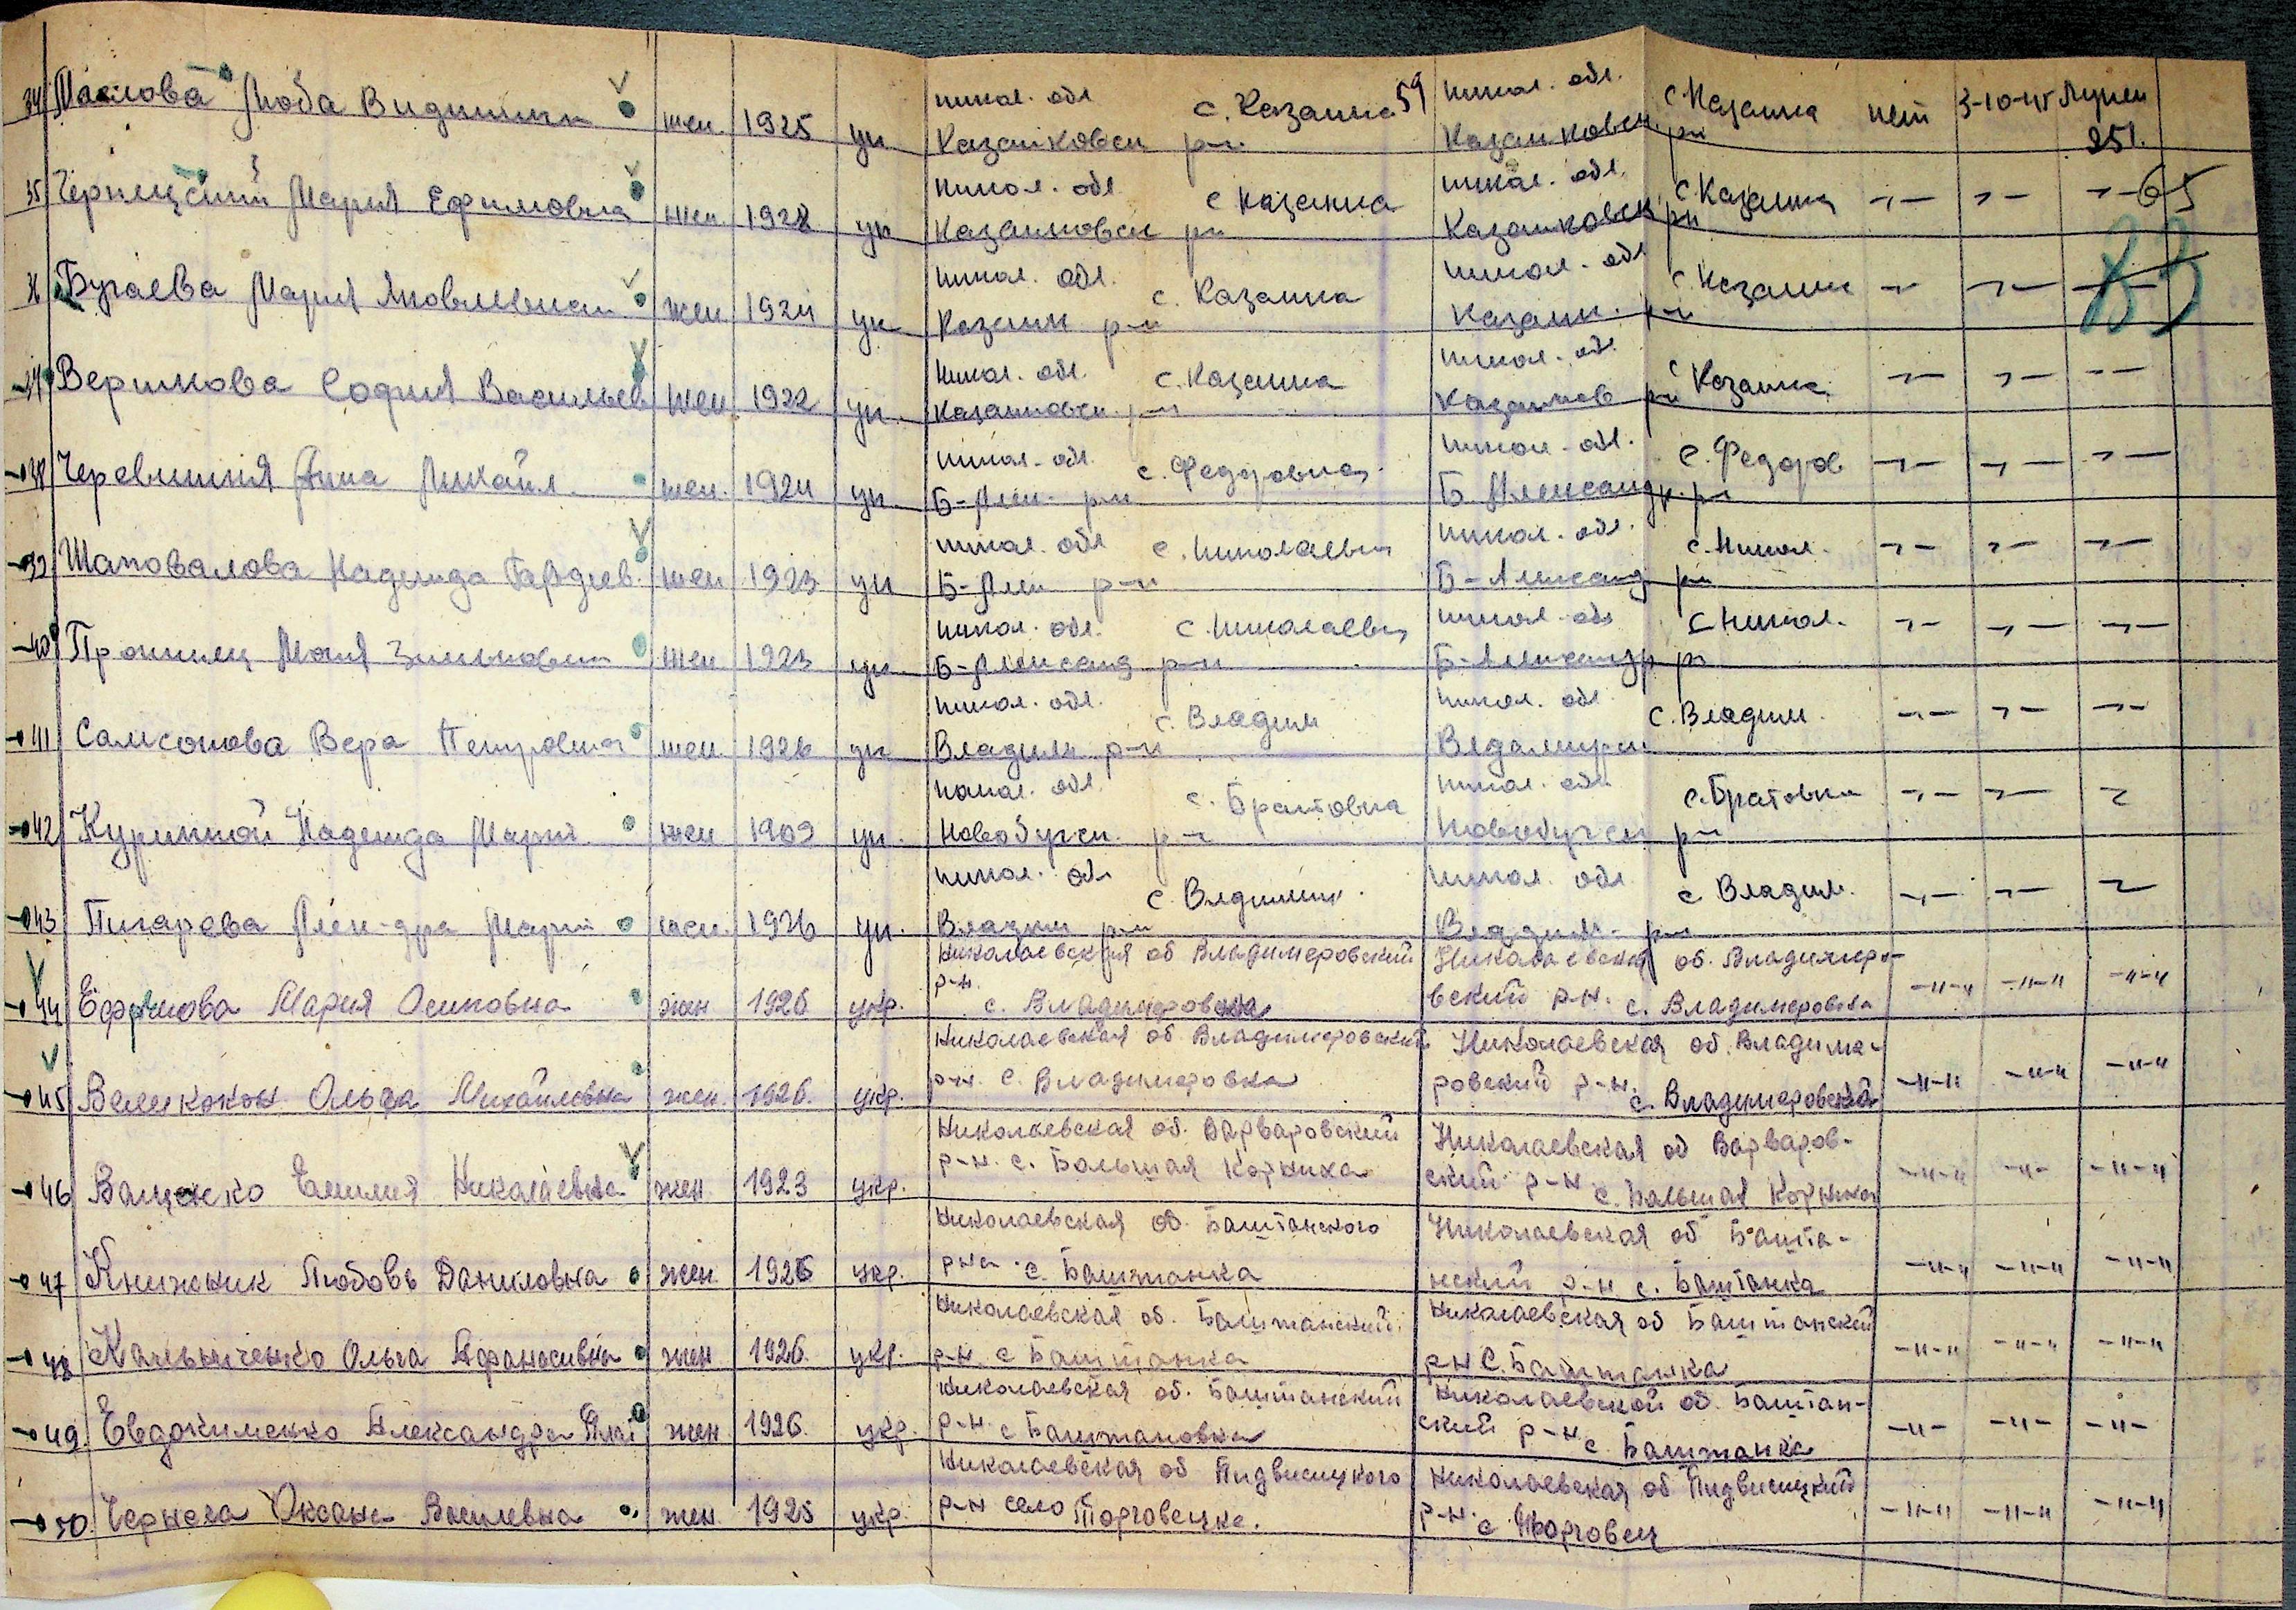 34 Маслова Люба жен. 1925 ук никол. обл Казанковск р-н с. Казанка 59 никол. обл. Казанковск р-н с. Казанка нет 3-10-45 251.
35 Мария Ефимовна жен. 1928 ук никол. обл Казанковск р-н с Казанка никол. обл. Казанковск р-н с. Казанка -"- -"- -"- 65
36 Бугаева Мария Яковлевна жен 1924 ук никол. обл. Казанк р-н с. Казанка никол. обл Казанк. р-н с. Казанк -"- -"- -"- 83
37 Вершкова София Васильев жен 1922 ук. никол. обл. Казанковск. р-н с. Казанка никол. обл. Казанков р-н с Казанка -"- -"- -"-
38 Анна Михайл. жен. 1924 ук никол. обл. Б-Алек. р-н с. Федоровка никол. обл. Б. Александр. р-н с. Федоров -"- -"- -"-
39 Шаповалова Надежда жен. 1923 ук никол. обл Б-Алек р-н с. Николаевка никол. обл. Б-Александ р-н с. Никол. -"- -"- -"-
40 жен 1923 ук. никол. обл. Б-Александ р-н с. Николаевка никол. обл Б-Александр р-н с Никол. -"- -"- -"-
41 Самсонова Вера Петровна жен. 1926 ук никол. обл. Владим р-н с. Владим никол. обл с. Владим. -"- -"- -"-
42 Надежда Марк. жен 1909 ук. никол. обл. Новобугск. р-н с. Братовка никол. обл. Новобугск р-н с. Братовка -"- -"- -"-
43 Писарева Алек-дра Марк. жен. 1926 ук. никол. обл Владим р-н никол. обл Владим. р-н с Владим. -"- -"- -"-
44 Ефимова Мария Осиповна жен 1926 укр. Николаевская об Владимеровский
р-н. с. Владимеровка Николаевская об. Владимеро-
вский р-н. с. Владимеровка -"-" -"-" -"-"
45 Ольга Михайловна жен. 1926. укр. Николаевская об. Владимеровский
р-н. с. Владимеровка Николаевская об. Владиме-
ровский р-н. с. Владимеровка -"-" -"-" -"-"
46 Ващенко Емилия Николаевна жен 1923 укр. Николаевская об. Варваровский
р-н. с. Большая Корниха Николаевская об Варваров-
ский р-н с. Большая Корниха -"-" -"- -"-"
47 Книжник Любовь Даниловна жен. 1926 укр. Николаевская об. Баштанского
р-на с. Баштанка Николаевская об Башта-
нский р-н с. Баштанка -"-" -"-" -"-"
48 Кальниченко Ольга Афанасивна жен 1926. укр. Николаевская об. Баштанский
р-н. с Баштанка Николаевская об Баштанский
р-н С. Баштанка -"-" -"-" -"-"
49. Евдокименко Александра жен 1926. укр. Николаевская об. Баштанский
р-н. с Баштановка Николаевской об. Баштан-
ский р-н с. Баштанка -"- -"- -"-
50. Чернега Оксана Василевна жен. 1925 укр. Николаевская об Пидвисицкого
р-н село Торговецке. Николаевская об Пидвисицкий
р-н. с Торговец -"-" -"-" -"-"